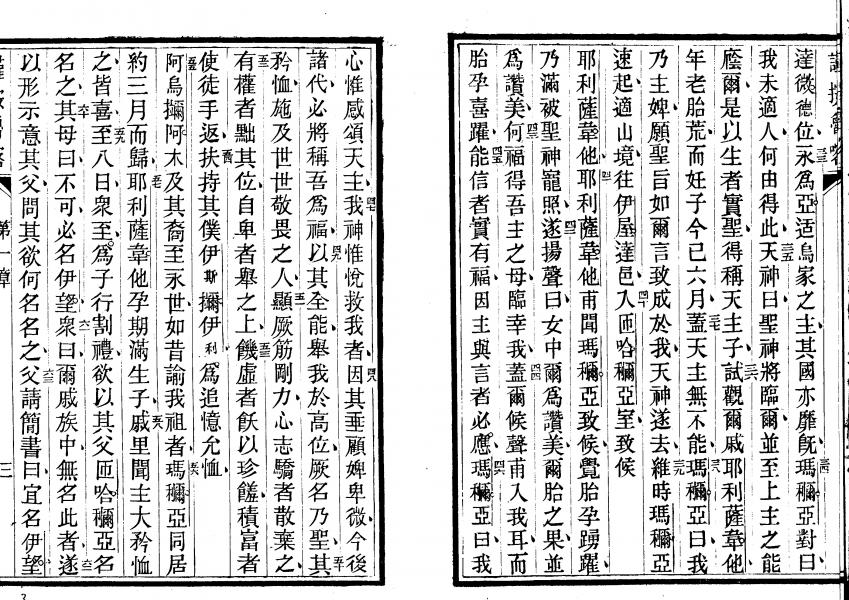 達微德位永爲亞适烏家之主其國亦靡旣瑪穪亞對曰
我未適人何由得此天神曰聖神將臨爾並至上主之能
廕爾是以生者實聖得稱天主子試觀爾戚耶利薩韋他
年老胎荒而妊子今已六月蓋天主無不能瑪穪亞曰我
乃主婢願聖旨如爾言致成於我天神遂去維時瑪穪亞
速起適山境往伊屋達邑入匝哈穪亞室致候
耶利薩韋他耶利薩韋他甫聞瑪穪亞致候覺胎孕踴躍
乃滿被聖神寵照遂揚聲曰女中爾爲讚美爾胎之果並
爲讚美何福得吾主之母臨幸我蓋爾候聲甫入我耳而
胎孕喜躍能信者實有福因主與言者必應瑪穪亞曰我
心惟感頌天主我神惟悅救我者因其垂顧婢卑微今後
諸代必將稱吾爲福以其全能舉我於高位厥名乃聖其
矜恤施及世世敬畏之人顯厥筋剛力心志驕者散棄之
有權者黜其位自卑者舉之上饑虛者飫以珍饈積富者
使徒手返扶持其僕伊斯擵伊利爲追憶允恤
阿烏擵阿木及其裔至永世如昔諭我祖者瑪穪亞同居
約三月而歸耶利薩韋他孕期滿生子戚里聞主大矜恤
之皆喜至八日衆至爲子行割禮欲以其父匝哈穪亞名
名之其母曰不可必名伊望衆曰爾戚族中無名此者遂
以形示意其父問其欲何名名之父請簡書曰宜名伊望
第一章
三
3